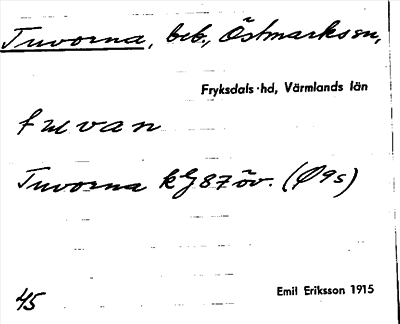 Tuvorna, beb., Östmarks sn,
Fryksdals hd, Värmlands län
Tuvorna 87 öv. (Ö 9s)
45 Emil Eriksson 1915